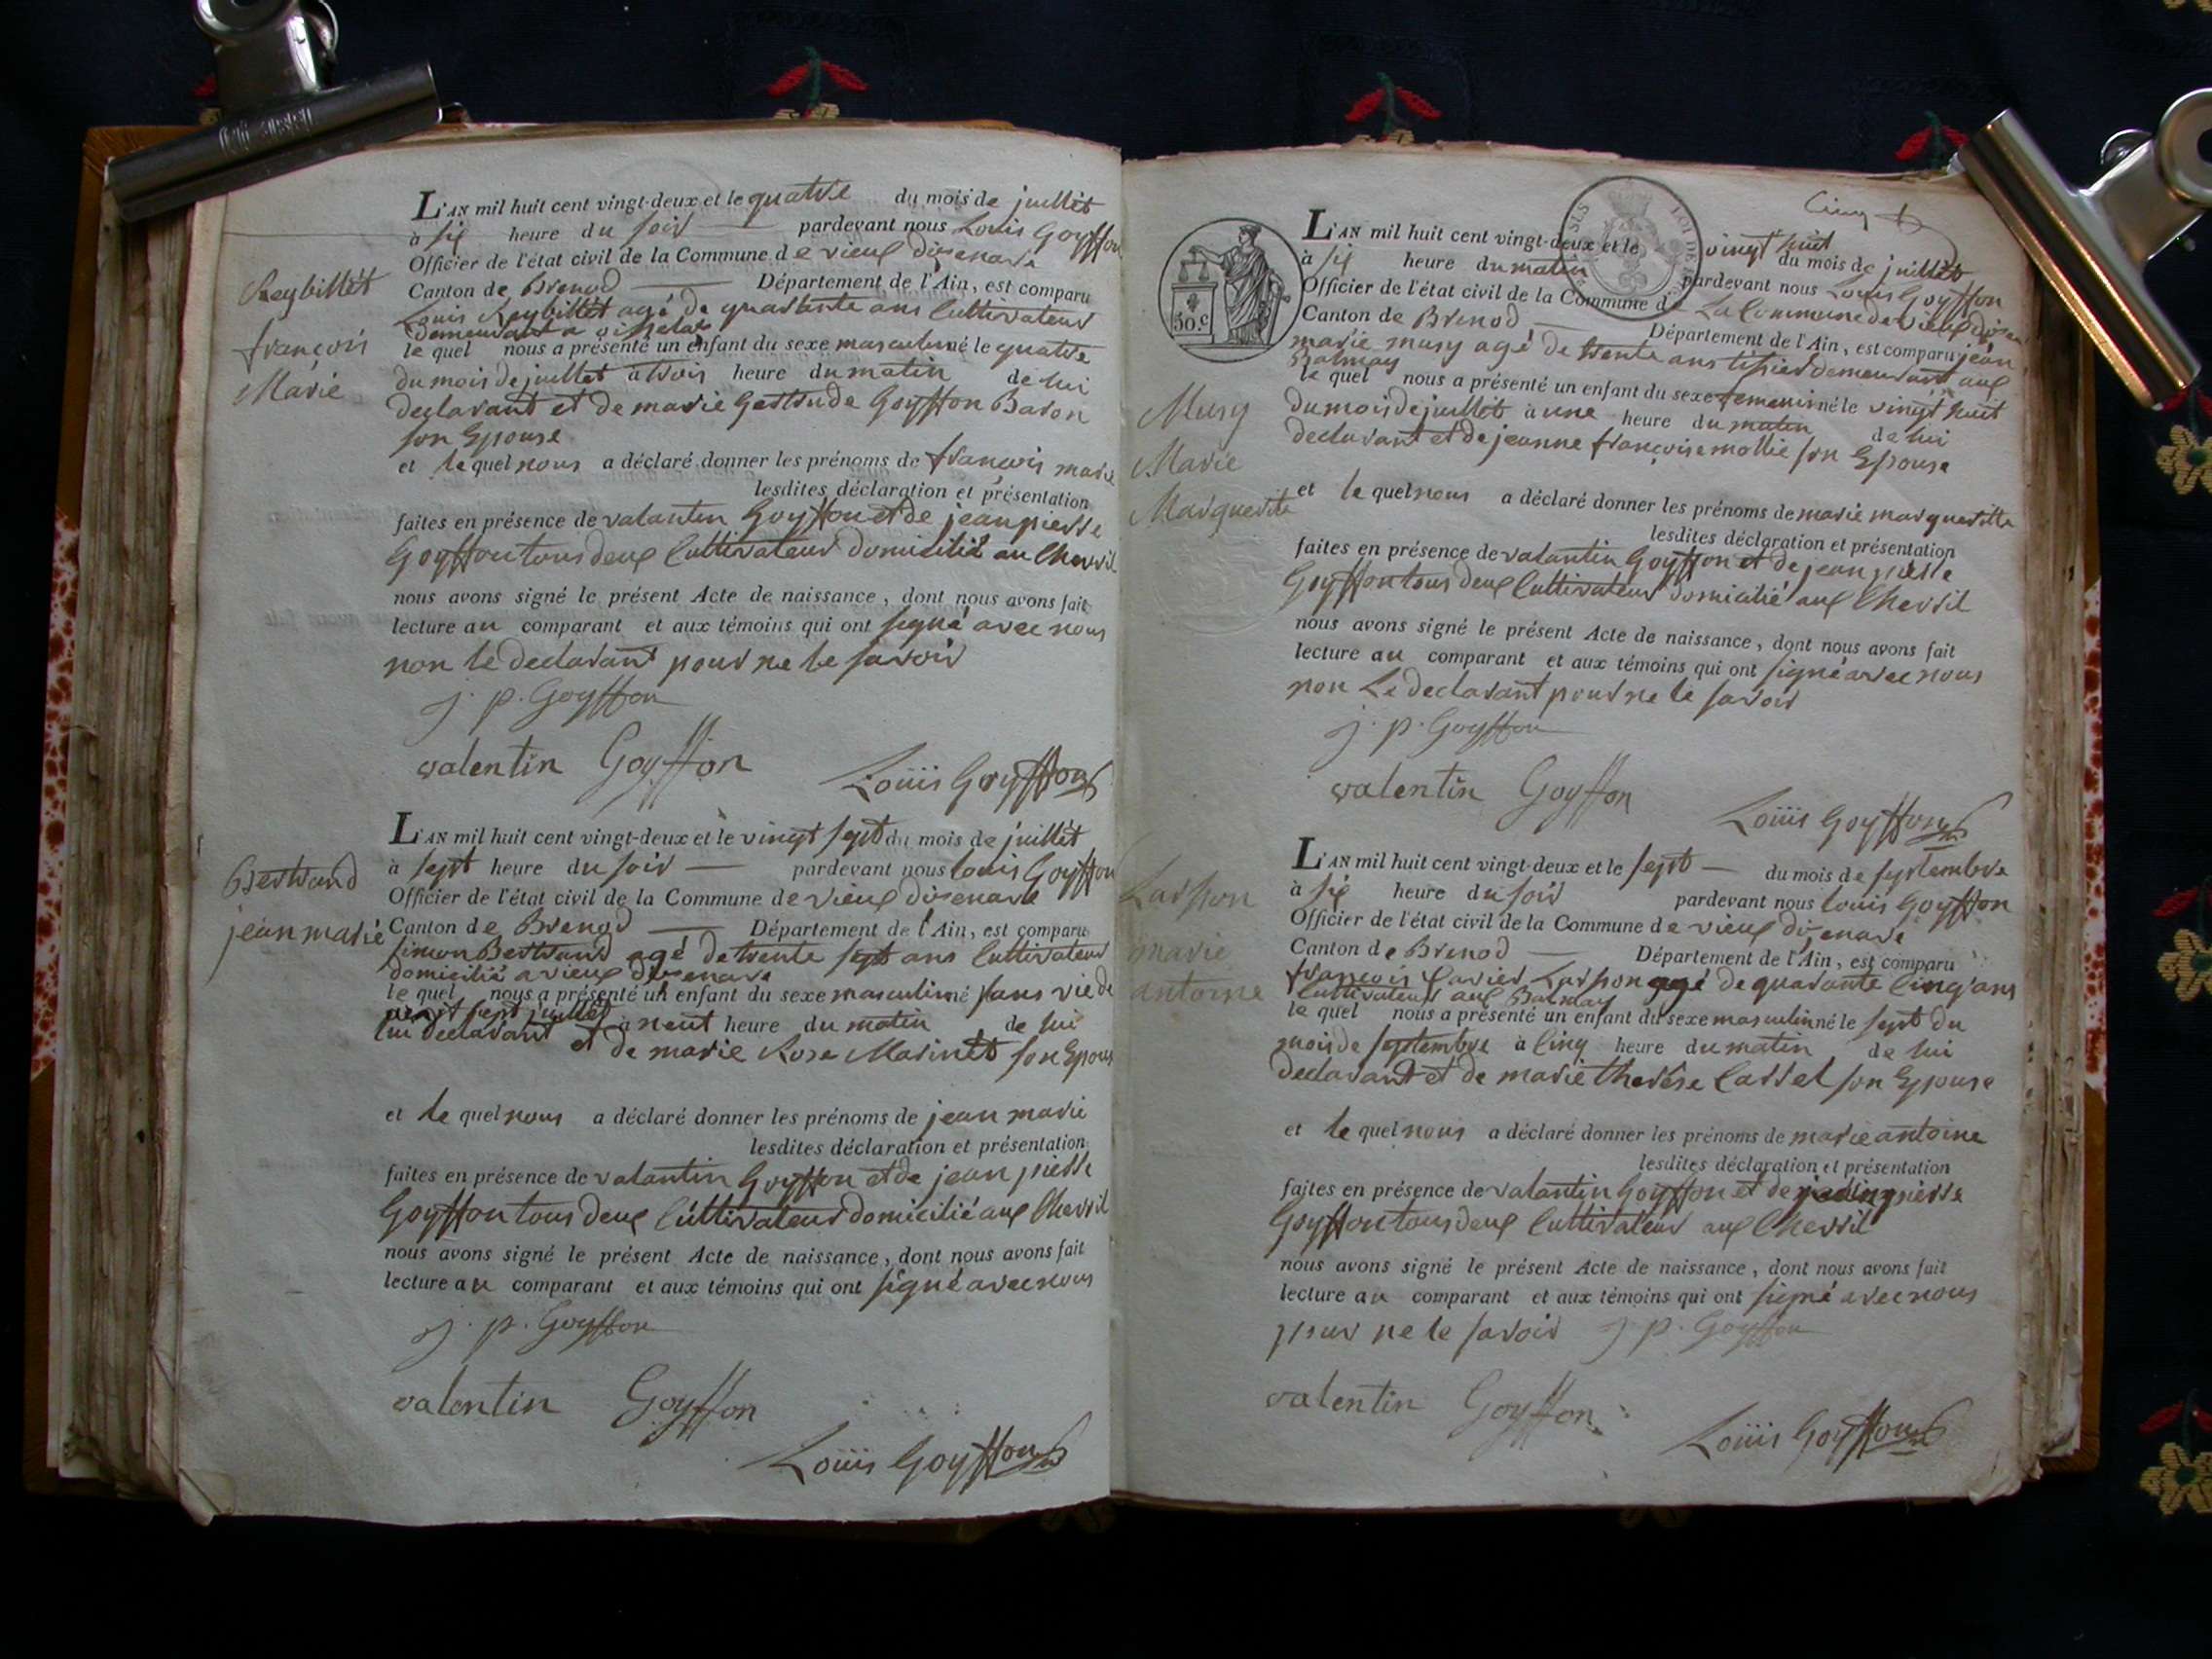 L'AN mil huit cent vingt-deux et le quatre du mois de juillet
à six heure du soir pardevant nous Louis Goyffon
Officier de l'état civil de la Commune de vieux disenave
Canton de Brenod Département de l'Ain, est comparu
Louis Reybillet agé de quarante ans Cultivateur
demeurant a
le quel nous a présenté un enfant du sexe masculin né le quatre
du mois de juillet à trois heure du matin de lui
declarant et de marie Gertrude Goyffon Baron
son Epouse
et le quel nous a déclaré donner les prénoms de françois marie
lesdites déclaration et présentation
faites en présence de valantin Goyffon et de jean pierre
Goyffon tous deux Cultivateur domicilié au Chevril
nous avons signé le présent Acte de naissance, dont nous avons fait
lecture au comparant et aux témoins qui ont signé avec nous
non le declarant pour ne le savoir
j. p. Goyffon
valentin Goyffon
Louis Goyffon
Reybillet
françois
Marie
L'AN mil huit cent vingt-deux et le vingt sept du mois de juillet
à sept heure du soir pardevant nous louis Goyffon
Officier de l'état civil de la Commune de vieux disenave
Canton de Brenod Département de l'Ain, est comparu
simon Bertrand agé de trente sept ans Cultivateur
domicilié a vieux disenave
le quel nous a présenté un enfant du sexe masculin né sans vie de
vingt sept juillet
lui declarant et à neuf heure du matin de lui
de marie Rose Marinet son Epouse
et le quel nous a déclaré donner les prénoms de jean marie
lesdites déclaration et présentation
faites en présence de valantin Goyffon et de jean pierre
Goyffon tous deux Cultivateur domicilié aux Chevril
nous avons signé le présent Acte de naissance, dont nous avons fait
lecture au comparant et aux témoins qui ont signé avec nous
j. p. Goyffon
valentin Goyffon
Louis Goyffon
Bertrand
jean marie
Cinq
50.c
L'AN mil huit cent vingt-deux et le vingt huit du mois de juillet
à six heure du matin pardevant nous Louis Goyffon
Officier de l'état civil de la Commune de La Commune de vieux disenave
Canton de Brenod Département de l'Ain, est comparu jean
marie musy agé de trente ans tisier demeurant aux
Balmay
le quel nous a présenté un enfant du sexe femenin né le vingt huit
du mois de juillet à une heure du matin de lui
declarant et de jeanne françoise mollie son Epouse
et le quel nous a déclaré donner les prénoms de marie marguerite
lesdites déclaration et présentation
faites en présence de valantin Goyffon et de jean pierre
Goyffon tous deux Cultivateur domicilié aux Chevril
nous avons signé le présent Acte de naissance, dont nous avons fait
lecture au comparant et aux témoins qui ont signé avec nous
non Le declarant pour ne le savoir
j. p. Goyffon
valentin Goyffon
Louis Goyffon
Musy
Marie
Marguerite
L'AN mil huit cent vingt-deux et le sept du mois de septembre
à six heure du soir pardevant nous louis Goyffon
Officier de l'état civil de la Commune de vieux disenave
Canton de Brenod Département de l'Ain, est comparu
françois Xavier Larson agé de quarante Cinq ans
Cultivateur aux Balmay
le quel nous a présenté un enfant du sexe masculin né le sept du
mois de septembre à Cinq heure du matin de lui
declarant et de marie therése Carrel son Epouse
et le quel nous a déclaré donner les prénoms de marie antoine
lesdites déclaration et présentation
faites en présence de valantin Goyffon et de pierre
Goyffon tous deux Cultivateur aux Chevril
nous avons signé le présent Acte de naissance, dont nous avons fait
lecture au comparant et aux témoins qui ont signé avec nous
pour ne le savoir j. p. Goyffon
valentin Goyffon
Louis Goyffon
Larson
marie
antoine